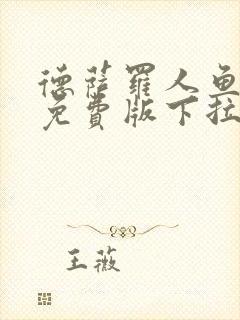 德萨罗人鱼
免费版下拉
王薇